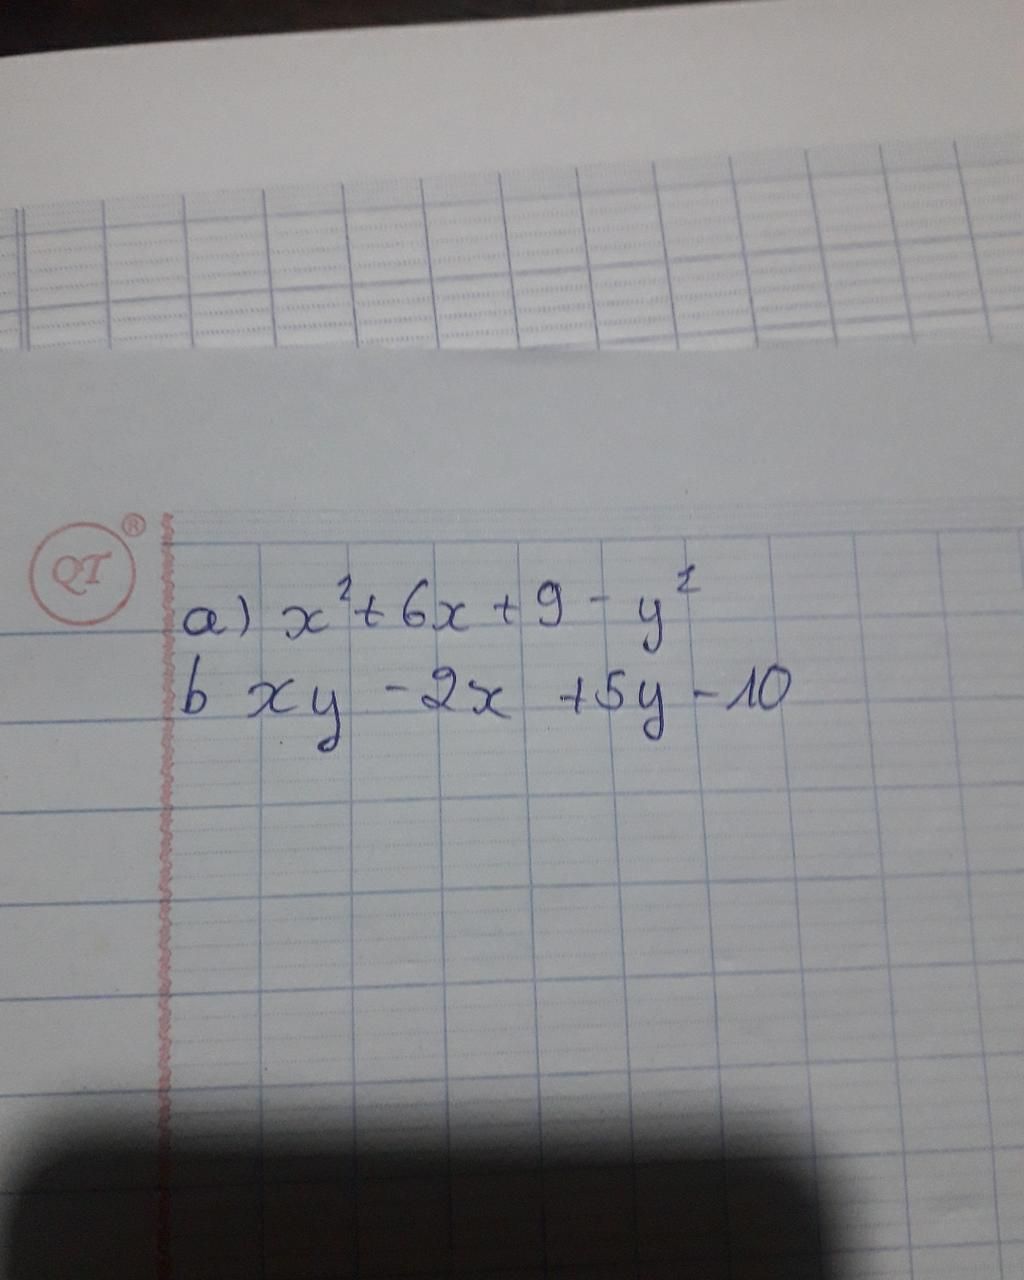 QT ®
a) x² + 6x + 9 - y²
b xy - 2x + 5y - 10